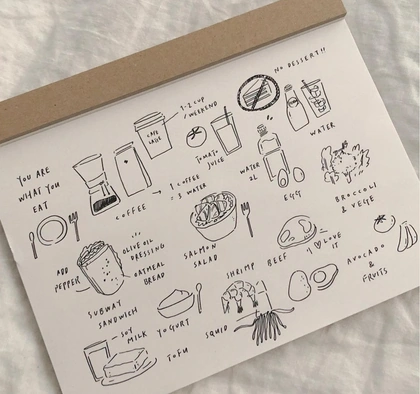 YOU ARE
WHAT YOU
EAT
CAFE
LATTE
1-2 CUP
/WEEKEND
COFFEE
→ 1 COFFEE
: 3 WATER
TOMATO
JUICE
NO DESSERT!!
WATER
WATER
2L
EGG
BROCCOLI
& VEGE
ADD
PEPPER
OLIVE OIL
DRESSING
OATMEAL
BREAD
SUBWAY
SANDWICH
SALMON
SALAD
BEEF
I ♡ LOVE
IT
AVOCADO
&
FRUITS
SOY
MILK
YOGURT
TOFU
SHRIMP
SQUID